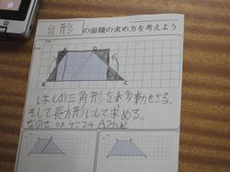 台形 の面積の求め方を考えよう
はしの三角形を移動させる。
そして長方形にして求める。
なので